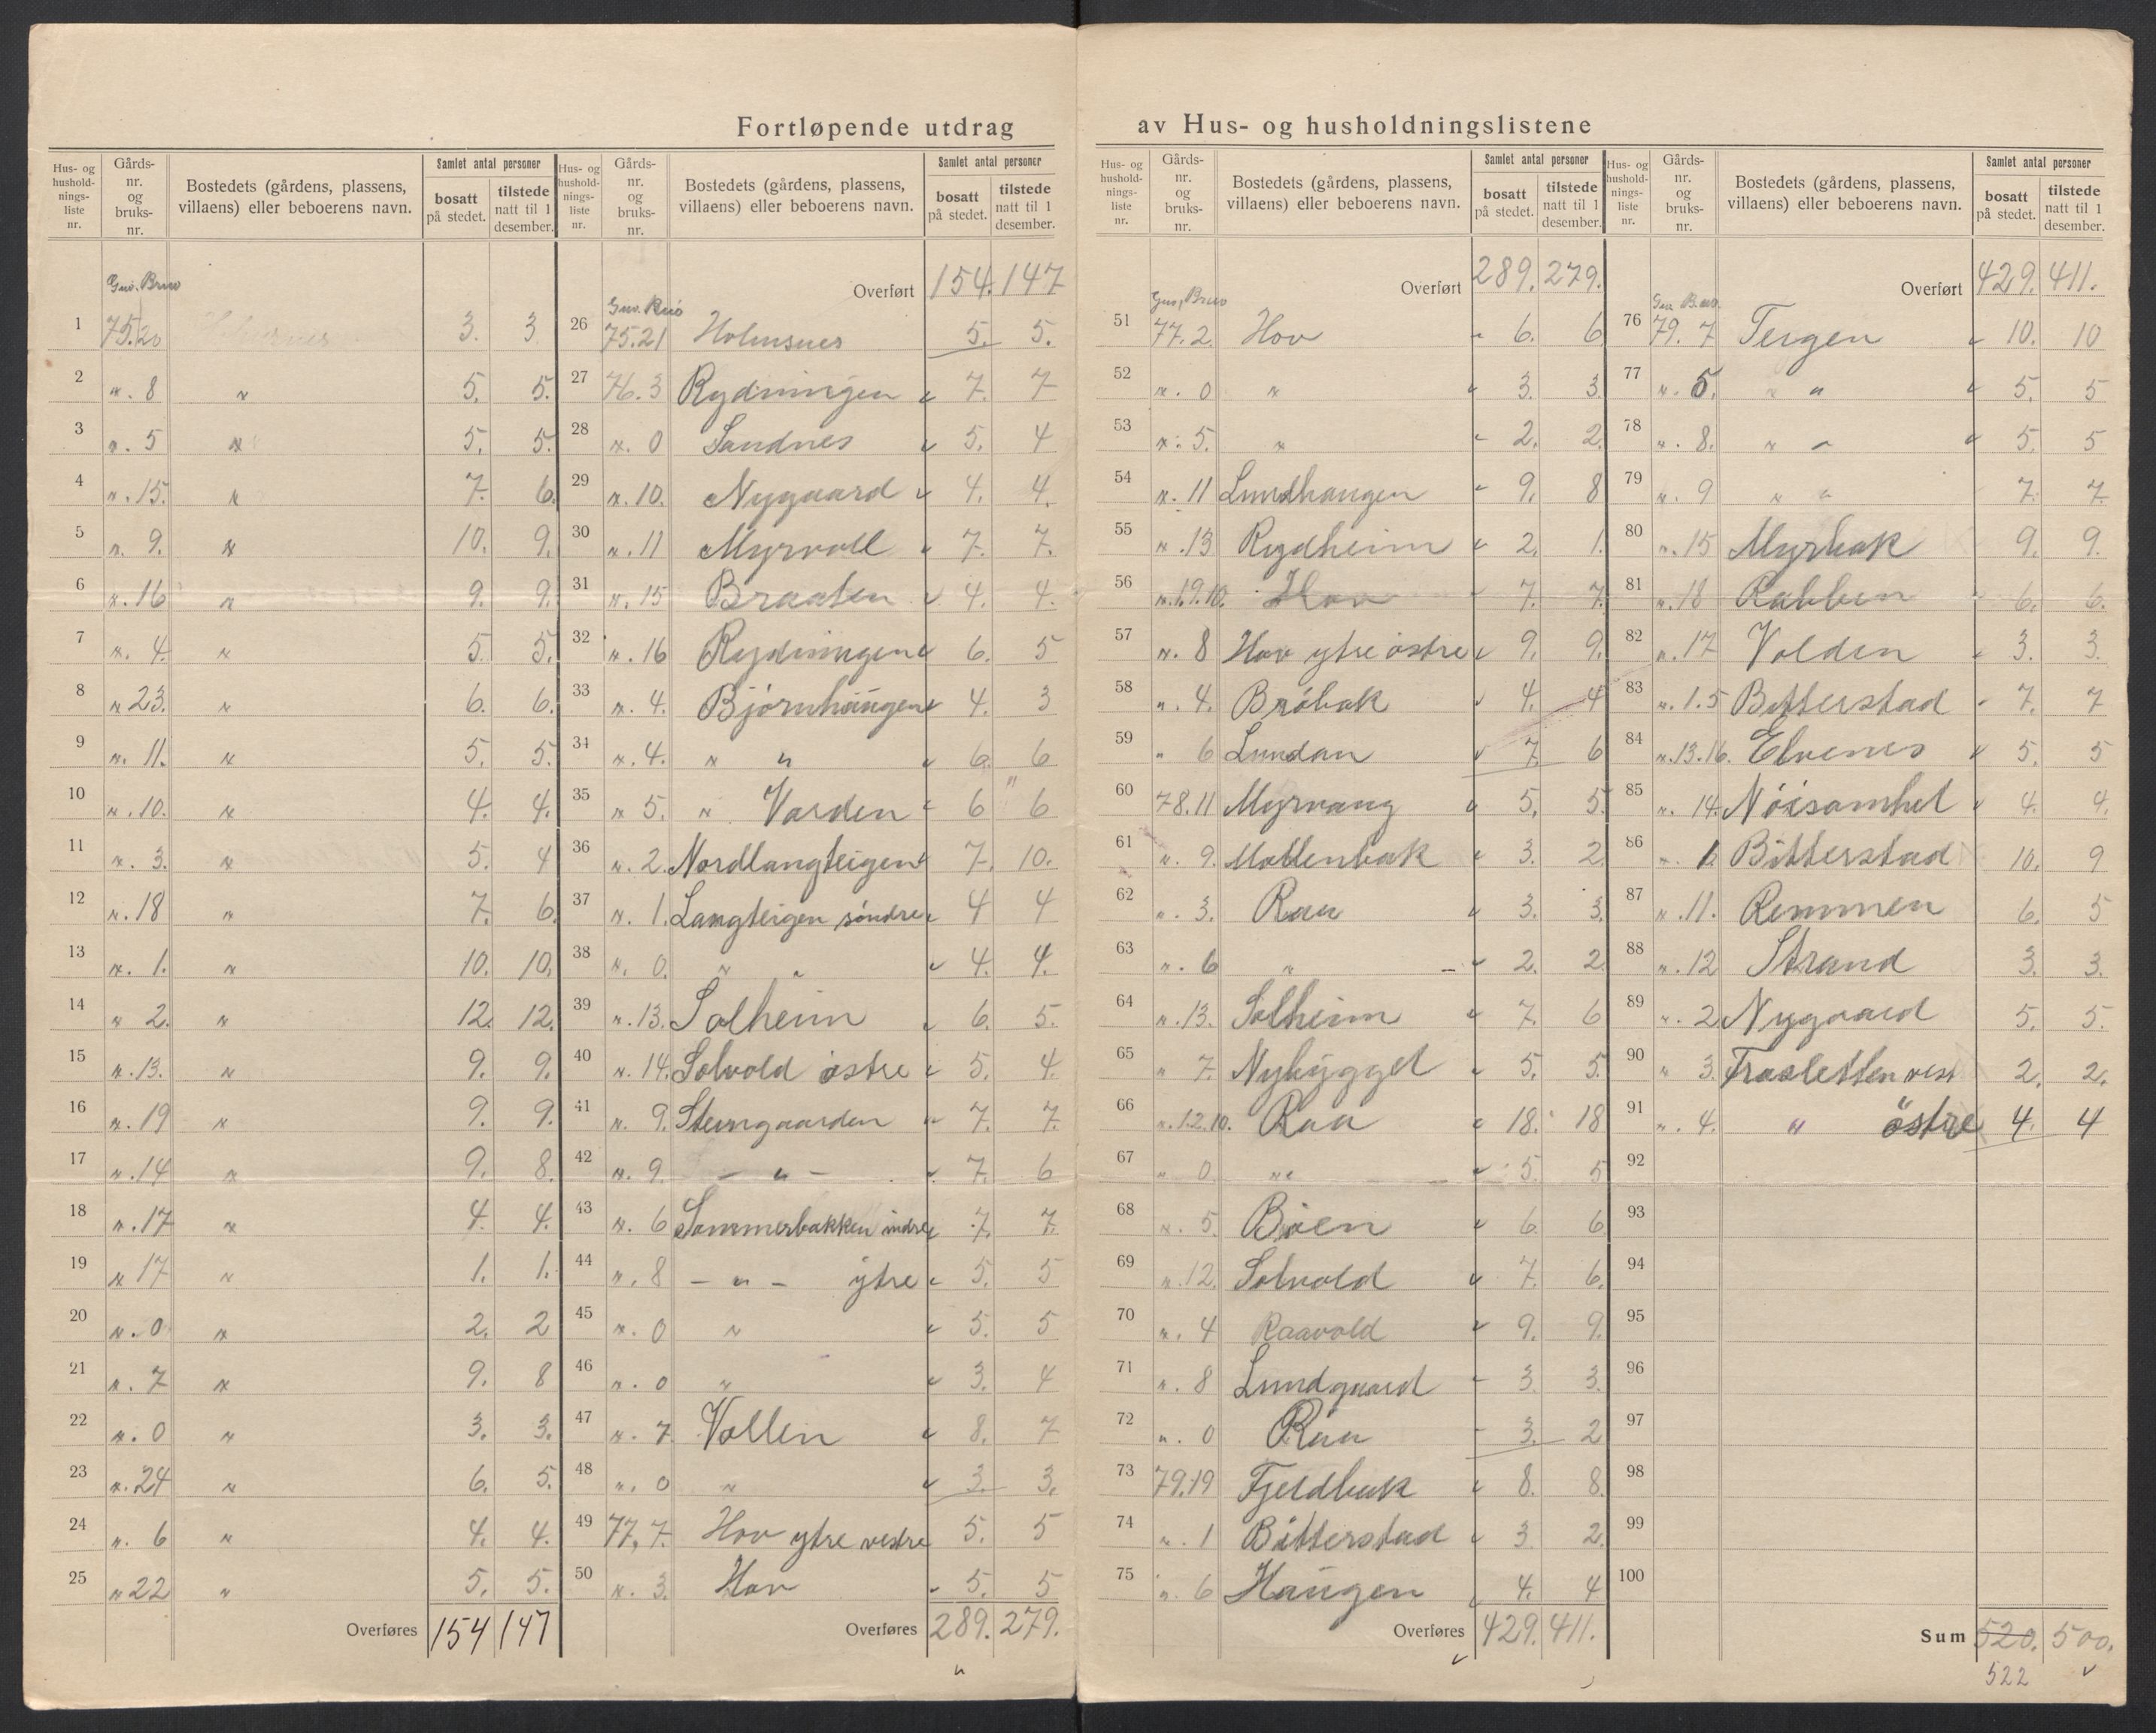 Fortløpende utdrag av Hus- og husholdningslistene
Hus- og husholdningsliste nr. | Gårds-nr. og bruks-nr. | Bostedets (gårdens, plassens, villaens) eller beboerens navn. | Samlet antal personer | bosatt på stedet. | tilstede natt til 1 desember.
Gnr. Bruo
1 75.20 3. 3
2 ". 8 " 5. 5.
3 ". 5 " 5. 5.
4 ". 15. " 7. 6.
5 ". 9. " 10. 9.
6 ". 16 " 9. 9.
7 ". 4. " 5. 5.
8 " 23. " 6. 6.
9 ". 11. " 5. 5.
10 ". 10. " 4. 4.
11 ". 3. " 5. 4
12 ". 18 " 7. 6.
13 ". 1. " 10. 10.
14 " 2. " 12. 12.
15 ". 13. " 9. 9.
16 ". 19 " 9. 9.
17 ". 14 " 9. 8.
18 ". 17 " 4. 4.
19 " 17 " 1. 1.
20 ". 0 " 2. 2
21 ". 7 " 9. 8
22 ". 0 " 3. 3.
23 ". 24 " 6. 5.
24 ". 6 " 4. 4.
25 " 22 " 5. 5.
Overføres 154 147
Hus- og husholdningsliste nr. | Gårds-nr. og bruks-nr. | Bostedets (gårdens, plassens, villaens) eller beboerens navn. | Samlet antal personer | bosatt på stedet. | tilstede natt til 1 desember.
Overført 154. 147
26 75.21 Holmsnes 5. 5.
27 76.3 Rydningen 7. 7
28 ". 0 Sandnes 5. 4
29 ". 10. Nygaard 4. 4.
30 ". 11 Myrvoll 7. 7.
31 ". 15 Braaten 4. 4.
32 ". 16 Rydningen 6. 5
33 ". 4. Bjørnhaugen 4. 3
34 ". 4. " " 6. 6
35 " 5. " Varden 6 6
36 ". 2. Nordlangteigen 7. 10.
37 ". 1. Langteigen søndre 4 4
38 ". 0. " " 4. 4.
39 ". 13. Solheim 6. 5.
40 ". 14. Solvold østre 5. 4.
41 ". 9. Steingaarden 7. 7.
42 ". 9. - " - 7. 6
43 ". 6 Sommerbakken indre 7. 7.
44 ". 8 - " - ytre 5. 5
45 ". 0 " 5. 5
46 ". 0 " 3. 4
47 ". 7 Vollen 8. 7
48 ". 0 " 3. 3.
49 77,7. Hov ytre vestre 5. 5
50 ". 3. Hov 5. 5
Overføres 289. 279.
Hus- og husholdningsliste nr. | Gårds-nr. og bruks-nr. | Bostedets (gårdens, plassens, villaens) eller beboerens navn. | Samlet antal personer | bosatt på stedet. | tilstede natt til 1 desember.
Overført 289. 279.
51 77.2. Hov 6. 6
52 ". 0 " 3. 3
53 ". 5. " 2. 2.
54 ". 11 Lundhaugen 9. 8
55 ". 13 Rydheim 2. 1.
56 ".1.9.10. Hov 7. 7.
57 ". 8 Hov ytre østre 9. 9.
58 ". 4. Bröbak 4. 4
59 " 6 Lundan 7. 6
60 78.11 Myrvang 5. 5.
61 ". 9. Mollenbak 3. 2
62 ". 3. Raa 3. 3.
63 ". 6 " 2. 2
64 ". 13. Solheim 7. 6
65 " 7. Nybygget 5. 5.
66 ".1.2.10. Raa 18. 18
67 " 0 " 5 5
68 ". 5. Böen 6. 6
69 ". 12. Solvold 7. 6.
70 ". 4 Raavold 9. 9.
71 ". 8 Lundgaard 3. 3.
72 ". 0 Raa 3. 2
73 79.19 Fjeldbak 8. 8.
74 ". 1 Bitterstad 3 2.
75 ". 6 Haugen 4. 4
Overføres 429. 411.
Hus- og husholdningsliste nr. | Gårds-nr. og bruks-nr. | Bostedets (gårdens, plassens, villaens) eller beboerens navn. | Samlet antal personer | bosatt på stedet. | tilstede natt til 1 desember.
Overført 429. 411.
76 79. 7 Teigen 10. 10
77 ". 5. " " 5. 5
78 ". 8. " " 5. 5
79 ". 9 " " 7. 7.
80 ". 15 Myrbak 9. 9.
81 ". 18 Rabben 6. 6.
82 ". 17 Volden 3. 3.
83 ". 1.5 Bitterstad 7. 7
84 ".13.16. Elvenes 5. 5
85 ". 14. Nöisomhet 4. 4.
86 ". 1. Bitterstad 10. 9
87 ". 11. Remmen 6. 5
88 ". 12 Strand 3. 3.
89 ". 2. Nygaard 5. 5.
90 " 3. Traaletten vest 2. 2.
91 ". 4. " östre 4. 4
92
93
94
95
96
97
98
99
100
Sum 520. 500.
522